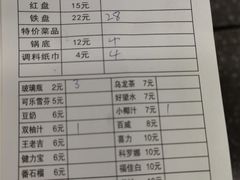 红盘 15元
铁盘 22元 28
特价菜品
锅底 12元 4
调料纸巾 4元 4
玻璃瓶 2元 3 乌龙茶 7元
可乐雪芬 5元 好望水 7元
豆奶 6元 小椰汁 7元 1
双柚汁 6元 1 百威 8元
王老吉 6元 喜力 10元
健力宝 6元 科罗娜 10元
番石榴 6元 福佳白 10元